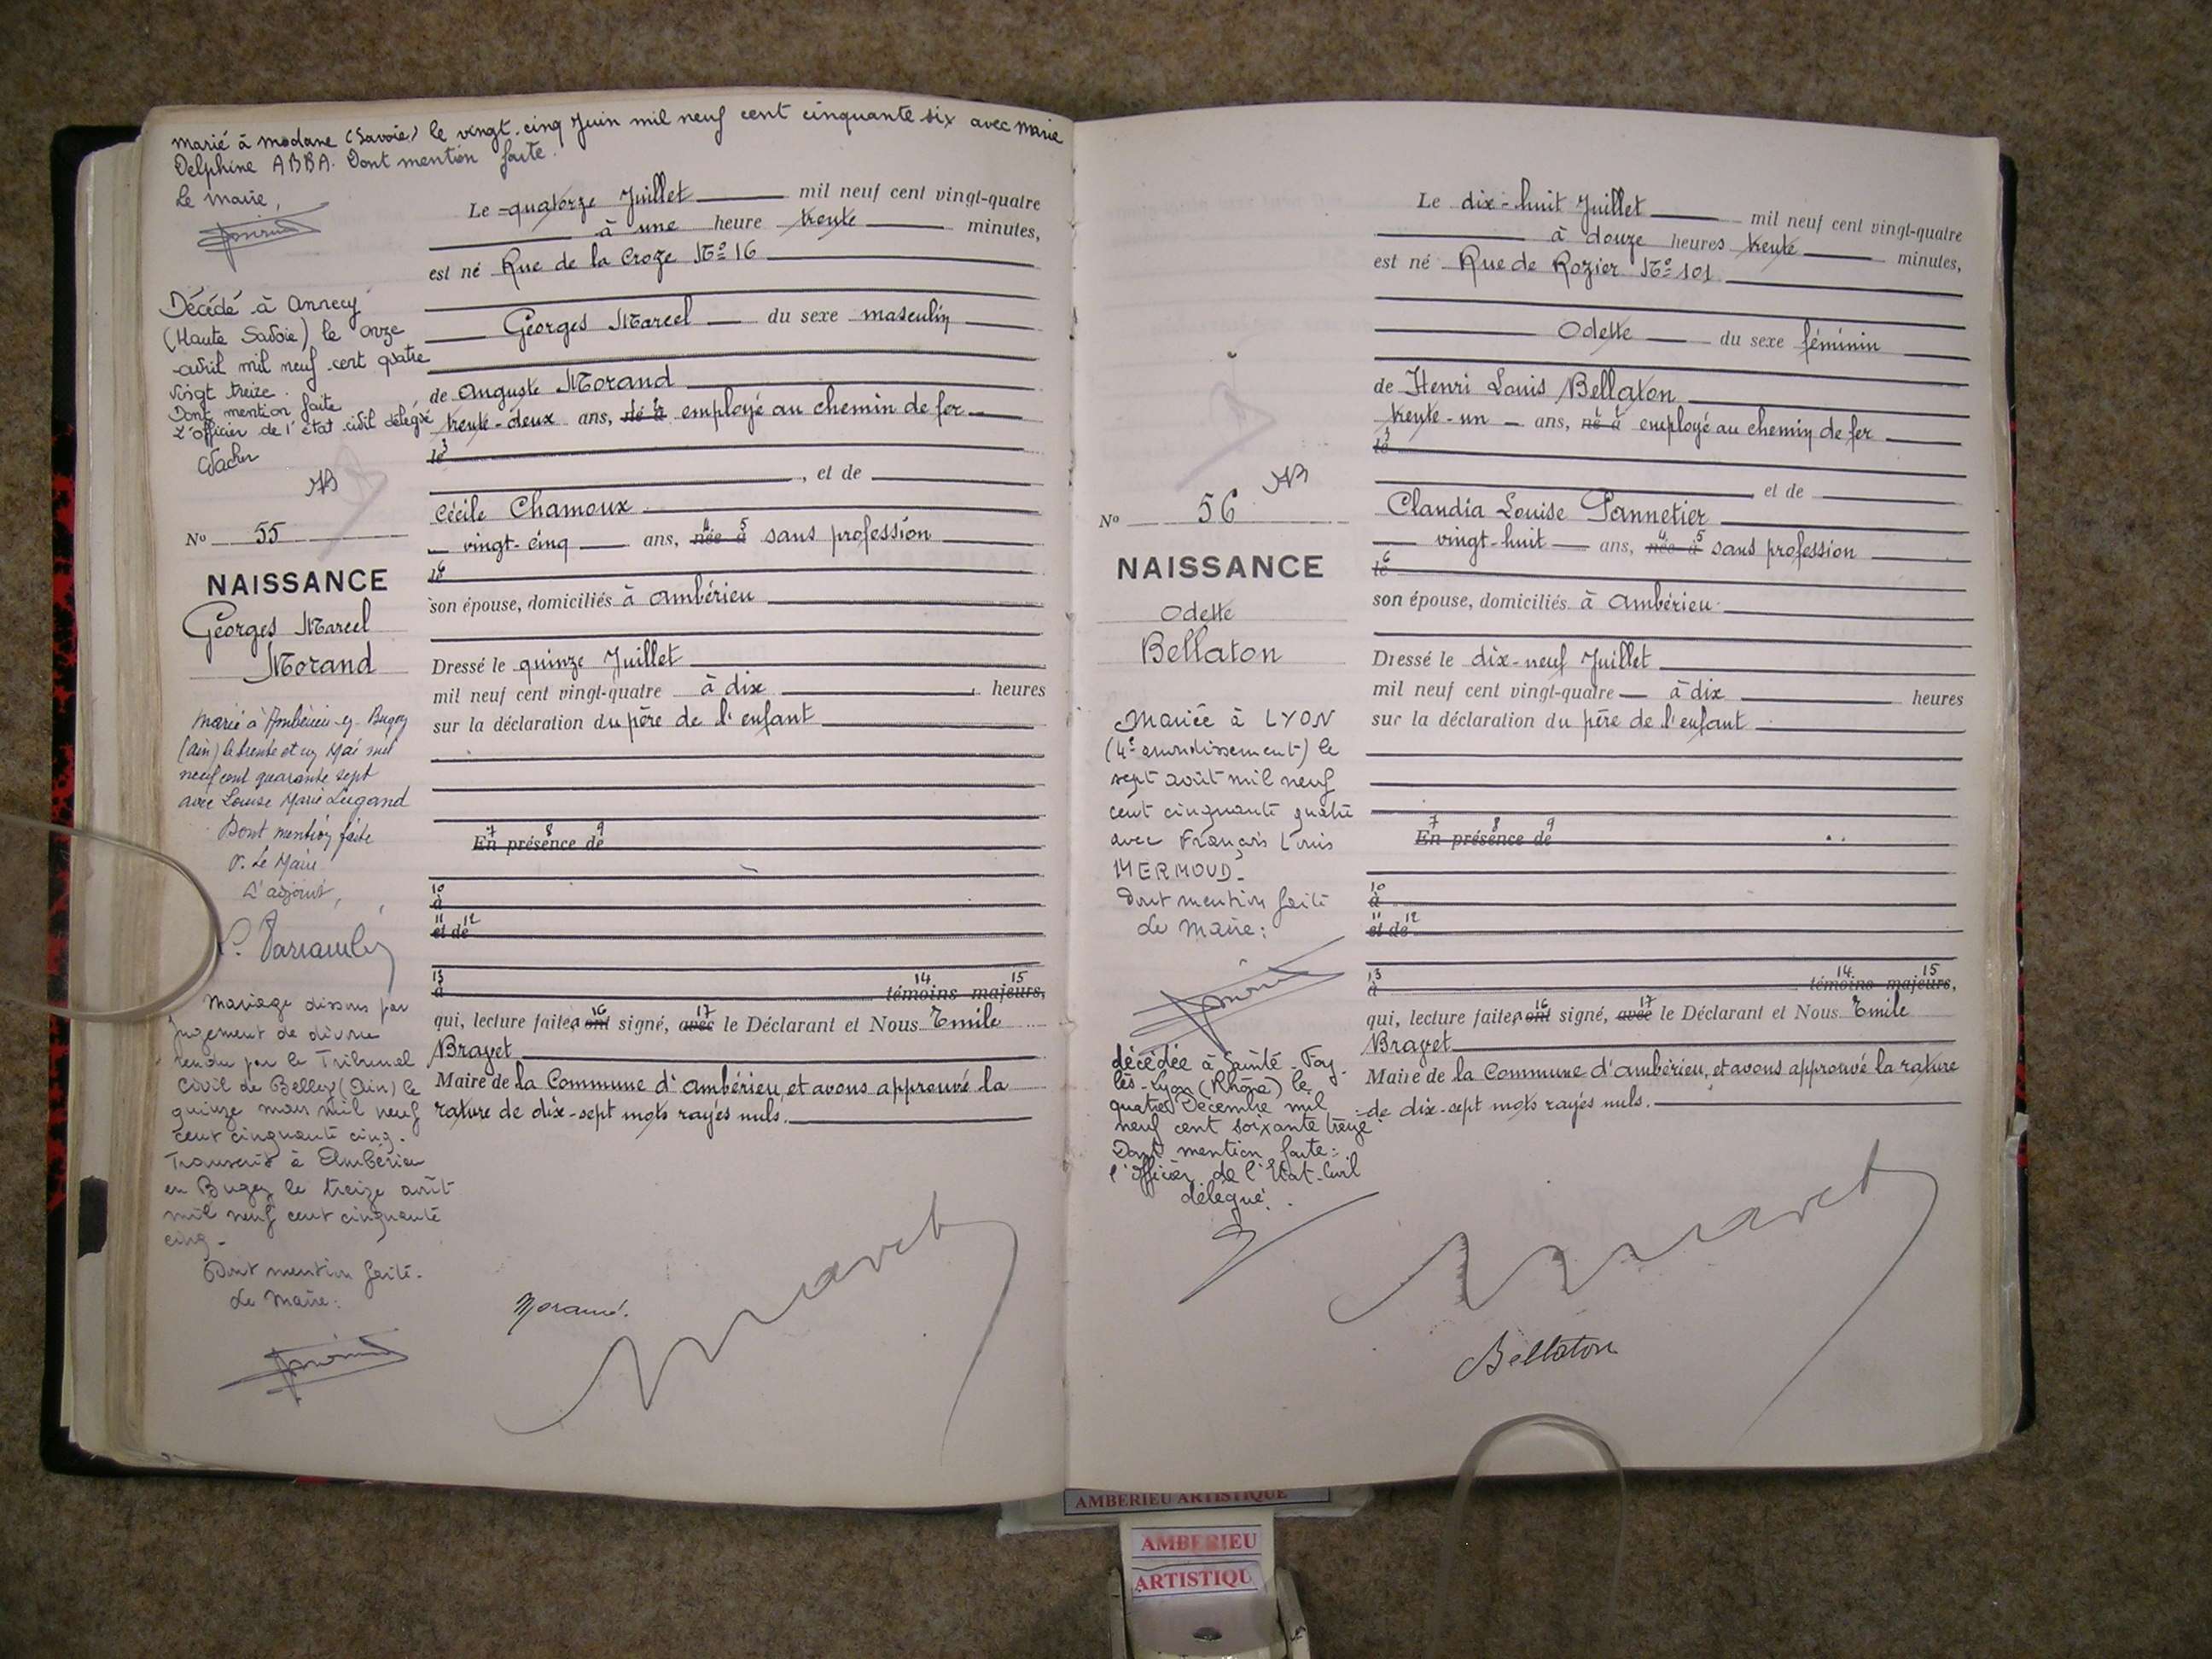 Marié à Modane (Savoie) le vingt-cinq Juin mil neuf cent cinquante six avec Marie
Delphine ABBA. Dont mention faite.
Le Maire,
Décédé à Annecy
(Haute Savoie) le onze
avril mil neuf cent quatre
vingt treize.
Dont mention faite
L'officier de l'état civil délégué
No 55
NAISSANCE
Georges Marcel
Morand
Marié à Ambérieu-en-Bugey
(Ain) le trente et un Mai mil
neuf cent quarante sept
avec Louise Marie Lugand
Dont mention faite
P. Le Maire
L'adjoint,
Mariage dissous par
jugement de divorce
rendu par le Tribunal
Civil de Belley (Ain) le
quinze mars mil neuf
cent cinquante cinq.
Transcrit à Ambérieu
en Bugey le treize août
mil neuf cent cinquante
cinq.
Dont mention faite.
Le Maire:
Le quatorze Juillet mil neuf cent vingt-quatre
à une heure trente minutes,
est né Rue de la Croze No 16
Georges Marcel du sexe masculin
de Auguste Morand
trente-deux ans, né à employé au chemin de fer
le 3
, et de
Cécile Chamoux
vingt-cinq ans, née à 4 5 sans profession
le 6
son épouse, domiciliés à Ambérieu
Dressé le quinze Juillet
mil neuf cent vingt-quatre à dix heures
sur la déclaration du père de l'enfant
7 8 9
En présence de
10
à
11 12
et de
13 14 15
à témoins majeurs,
16 17
qui, lecture faite, ont signé, avec le Déclarant et Nous Emile
Bravet
Maire de la Commune d'Ambérieu, et avons approuvé la
rature de dix-sept mots rayés nuls.
Morand.
Bravet
Le dix-huit Juillet mil neuf cent vingt-quatre
à douze heures trente minutes,
est né Rue de Rozier No 101
Odette du sexe féminin
de Henri Louis Bellaton
trente-un ans, né à employé au chemin de fer
le 3
et de
Claudia Louise Pannetier
vingt-huit ans, née à 4 5 sans profession
le 6
son épouse, domiciliés à Ambérieu
Dressé le dix-neuf Juillet
mil neuf cent vingt-quatre à dix heures
sur la déclaration du père de l'enfant
7 8 9
En présence de
10
à
11 12
et de
13 14 15
à témoins majeurs,
16 17
qui, lecture faite, ont signé, avec le Déclarant et Nous Emile
Bravet
Maire de la Commune d'Ambérieu, et avons approuvé la rature
de dix-sept mots rayés nuls.
Bravet
Bellaton
No 56
NAISSANCE
Odette
Bellaton
Mariée à LYON
(4e arrondissement) le
sept août mil neuf
cent cinquante quatre
avec François Louis
MERMOUD.
Dont mention faite
Le Maire:
décédée à Sainte-Foy-
lès-Lyon (Rhône) le
quatre Décembre mil
neuf cent soixante treize
Dont mention faite:
l'officier de l'Etat-Civil
délégué.
AMBERIEU ARTISTIQUE
AMBERIEU
ARTISTIQU